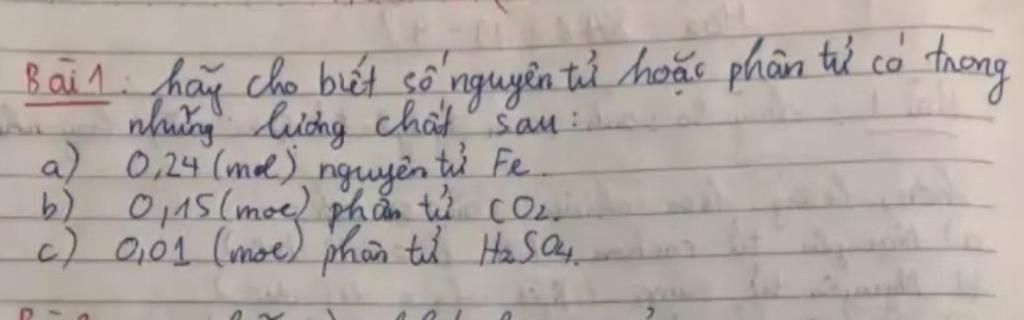 Bài 1: hãy cho biết số nguyên tử hoặc phân tử có trong
những lượng chất sau:
a) 0,24 (mol) nguyên tử Fe.
b) 0,15 (mol) phân tử CO2.
c) 0,01 (mol) phân tử H2SO4.